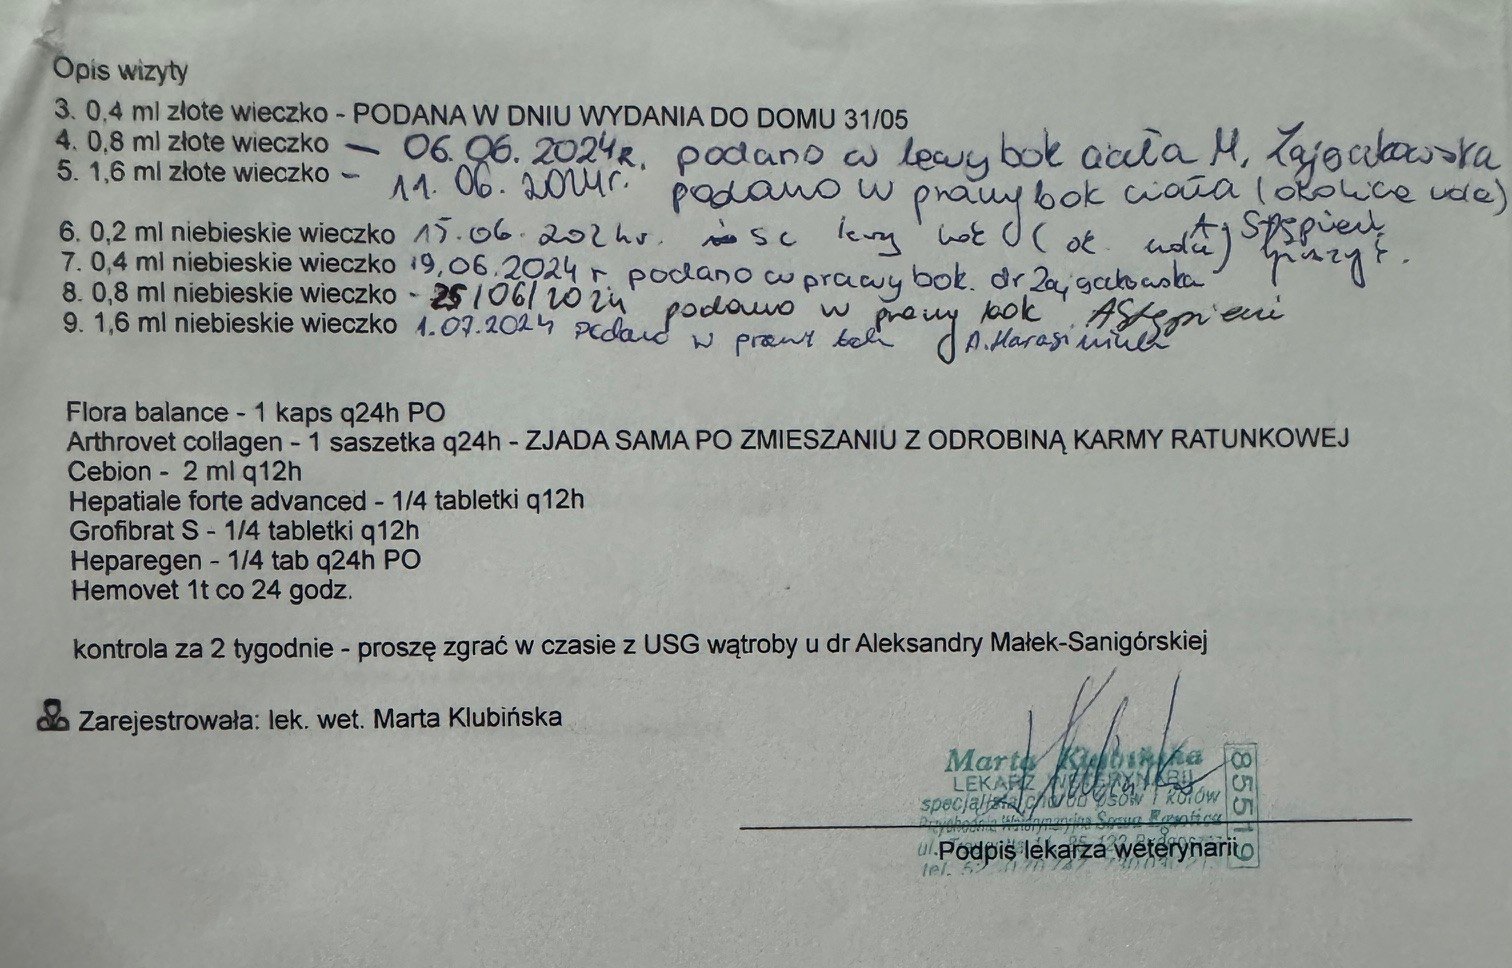 Opis wizyty
3. 0,4 ml złote wieczko - PODANA W DNIU WYDANIA DO DOMU 31/05
4. 0,8 ml złote wieczko — 06.06.2024r. podano w lewy bok ciała M. Zajączkowska
5. 1,6 ml złote wieczko - 11.06.2024r. podano w prawy bok ciała (okolice uda)
A. Stępień
6. 0,2 ml niebieskie wieczko 15.06.2024r. sc lewy bok (ok. uda)
7. 0,4 ml niebieskie wieczko 19.06.2024r podano w prawy bok. dr Zajączkowska
8. 0,8 ml niebieskie wieczko - 25/06/2024 podano w prawy bok AStępień
9. 1,6 ml niebieskie wieczko 1.07.2024 podano w prawy bok A. Harasimiuk
Flora balance - 1 kaps q24h PO
Arthrovet collagen - 1 saszetka q24h - ZJADA SAMA PO ZMIESZANIU Z ODROBINĄ KARMY RATUNKOWEJ
Cebion - 2 ml q12h
Hepatiale forte advanced - 1/4 tabletki q12h
Grofibrat S - 1/4 tabletki q12h
Heparegen - 1/4 tab q24h PO
Hemovet 1t co 24 godz.
kontrola za 2 tygodnie - proszę zgrać w czasie z USG wątroby u dr Aleksandry Małek-Sanigórskiej
Zarejestrowała: lek. wet. Marta Klubińska
Marta Klubińska
LEKARZ WETERYNARII
specjalista chorób psów i kotów
85519
Podpis lekarza weterynarii